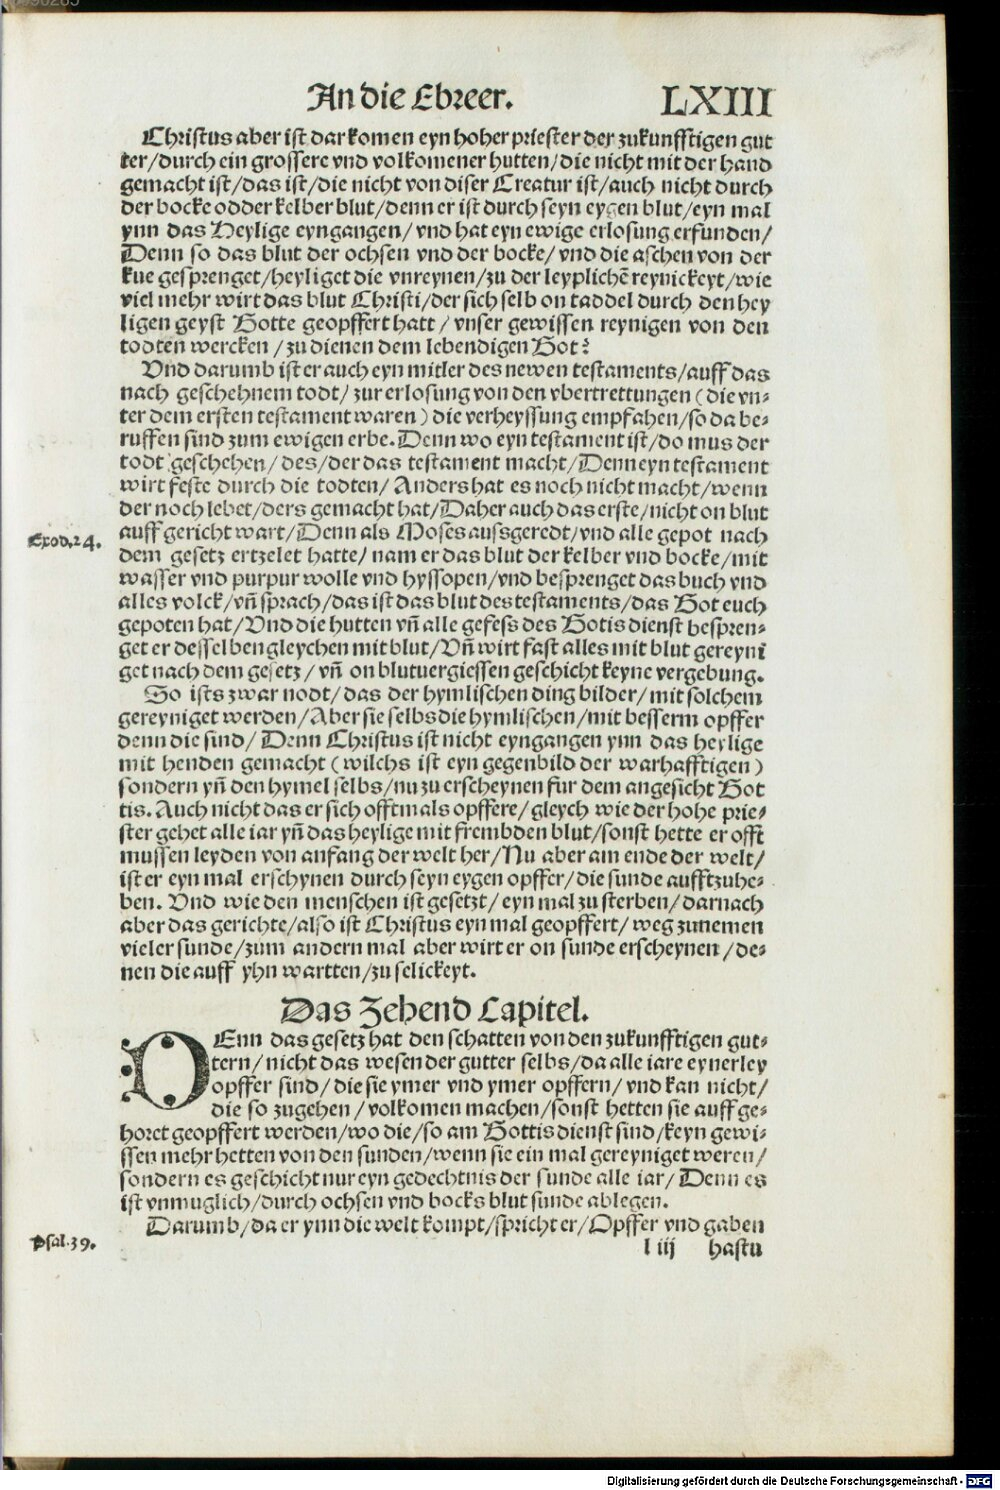 An die Ebreer. LXIII
Christus aber ist dar komen eyn hoher priester der zukunfftigen gut
ter/durch ein grossere vnd volkomener hutten/die nicht mit der hand
gemacht ist/das ist/die nicht von diser Creatur ist/auch nicht durch
der bocke odder kelber blut/denn er ist durch seyn eygen blut/eyn mal
ynn das Heylige eyngangen/vnd hat eyn ewige erlosung erfunden/
Denn so das blut der ochsen vnd der bocke/vnd die aschen von der
kue gesprenget/heyliget die vnreynen/zu der leyplichē reynickeyt/wie
viel mehr wirt das blut Christi/der sich selb on taddel durch den hey
ligen geyst Gotte geopffert hatt/vnser gewissen reynigen von den
todten wercken/zu dienen dem lebendigen Got?
Vnd darumb ist er auch eyn mitler des newen testaments/auff das
nach geschehnem todt/zur erlosung von den vbertrettungen (die vn-
ter dem ersten testament waren) die verheyssung empfahen/so da be-
ruffen sind zum ewigen erbe. Denn wo eyn testament ist/do mus der
todt geschehen/des/der das testament macht/Denn eyn testament
wirt feste durch die todten/Anders hat es noch nicht macht/wenn
der noch lebet/ders gemacht hat/Daher auch das erste/nicht on blut
Exod. 24. auff gericht wart/Denn als Moses aussgeredt/vnd alle gepot nach
dem gesetz ertzelet hatte/nam er das blut der kelber vnd bocke/mit
wasser vnd purpur wolle vnd hyssopen/vnd besprenget das buch vnd
alles volck/vñ sprach/das ist das blut des testaments/das Got euch
gepoten hat/Vnd die hutten vñ alle gefess des Gotis dienst bespren-
get er desselben gleychen mit blut/Vñ wirt fast alles mit blut gereyni
get nach dem gesetz/vñ on blutuergiessen geschicht keyne vergebung.
So ists zwar nodt/das der hymlischen ding bilder/mit solchem
gereyniget werden/Aber sie selbs die hymlischen/mit besserm opffer
denn die sind/Denn Christus ist nicht eyngangen ynn das heylige
mit henden gemacht (wilchs ist eyn gegenbild der warhafftigen)
sondern yñ den hymel selbs/nu zu erscheynen fur dem angesicht Got
tis. Auch nicht das er sich offtmals opffere/gleych wie der hohe prie-
ster gehet alle iar yñ das heylige mit frembden blut/sonst hette er offt
mussen leyden von anfang der welt her/Nu aber am ende der welt/
ist er eyn mal erschynen durch seyn eygen opffer/die sunde aufftzuhe-
ben. Vnd wie den menschen ist gesetzt/eyn mal zu sterben/darnach
aber das gerichte/also ist Christus eyn mal geopffert/weg zunemen
vieler sunde/zum andern mal aber wirt er on sunde erscheynen/de-
nen die auff yhn wartten/zu selickeyt.
Das Zehend Capitel.
DEnn das gesetz hat den schatten von den zukunfftigen gut-
tern/nicht das wesen der gutter selbs/da alle iare eynerley
opffer sind/die sie ymer vnd ymer opffern/vnd kan nicht/
die so zugehen/volkomen machen/sonst hetten sie auff ge-
horet geopffert werden/wo die/so am Gottis dienst sind/keyn gewi-
ssen mehr hetten von den sunden/wenn sie ein mal gereyniget weren/
sondern es geschicht nur eyn gedechtnis der sunde alle iar/Denn es
ist vnmuglich/durch ochsen vnd bocks blut sunde ablegen.
Darumb/da er ynn die welt kompt/spricht er/Opffer vnd gaben
Psal. 39. l iij hastu
Digitalisierung gefördert durch die Deutsche Forschungsgemeinschaft - DFG